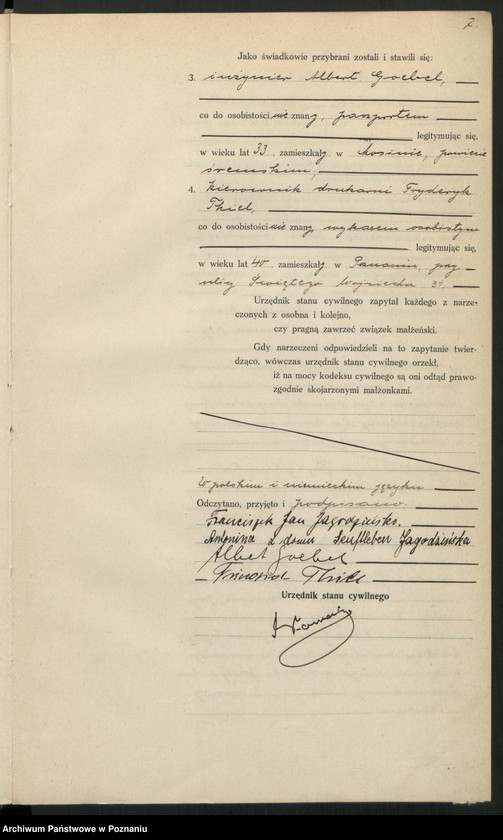 2
Jako świadkowie przybrani zostali i stawili się:
3. inżynier Albert Goebel,
co do osobistości nie znany, paszportem
legitymując się,
w wieku lat 33, zamieszkały w Mosinie, powiecie
śremskim,
4. Kierownik drukarni Fryderyk
Thiel,
co do osobistości nie znany, wykazem osobistym
legitymując się,
w wieku lat 40, zamieszkały w Poznaniu, przy
ulicy Świętego Wojciecha 31.
Urzędnik stanu cywilnego zapytał każdego z narze-
czonych z osobna i kolejno,
czy pragną zawrzeć związek małżeński.
Gdy narzeczeni odpowiedzieli na to zapytanie twier-
dząco, wówczas urzędnik stanu cywilnego orzekł,
iż na mocy kodeksu cywilnego są oni odtąd prawo-
zgodnie skojarzonymi małżonkami.
W polskim i niemieckim języku
Odczytano, przyjęto i podpisano
Franciszek Jan Jagodziński.
Antonina z domu Senftleben Jagodzińska
Albert Goebel
Thiel
Urzędnik stanu cywilnego
Archiwum Państwowe w Poznaniu